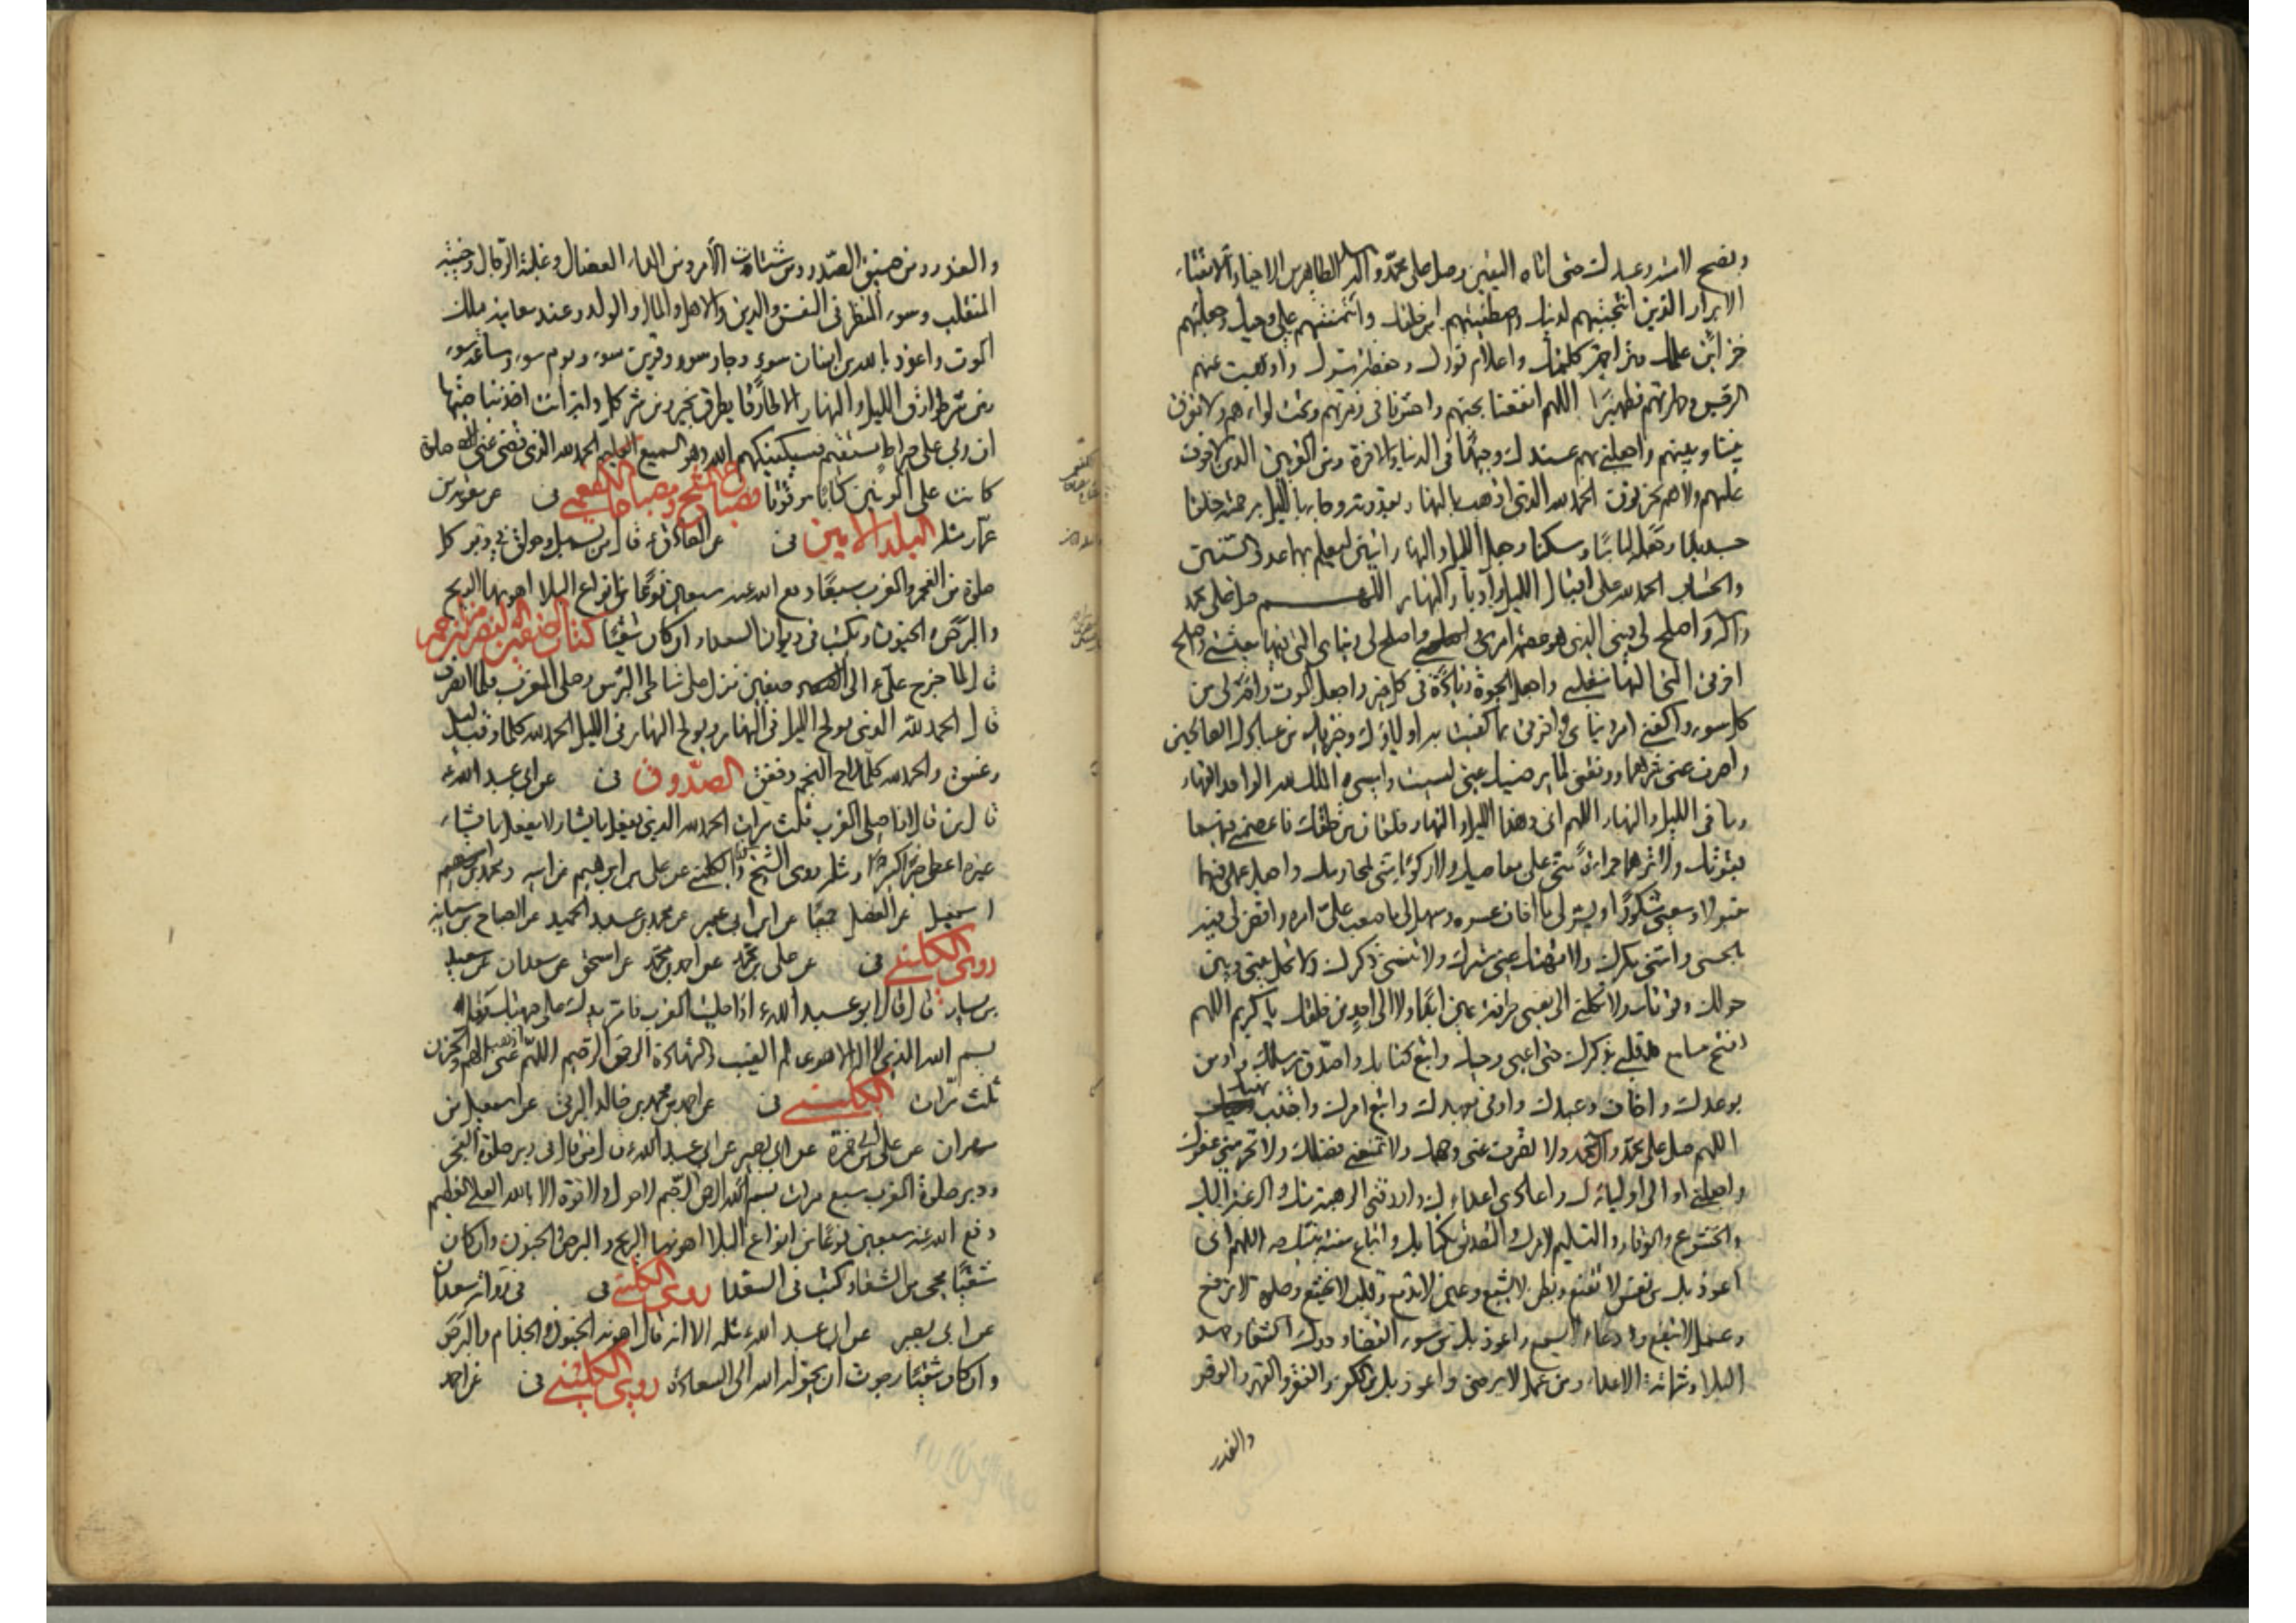 ونصح لامته وعبدك حتى اتاه اليقين وصل على محمد وآله الطاهرين الاخيار الاتقياء
الابرار الذين انتجبتهم لدينك واصطفيتهم من خلقك وائتمنتهم على وحيك وجعلتهم
خزائن علمك وتراجمة كلمتك واعلام نورك وحفظة سرك واذهبت عنهم
الرجس وطهرتهم تطهيرًا اللهم انفعنا بحبهم واحشرنا في زمرتهم وتحت لوائهم ولا تفرق
بيننا وبينهم واجعلني بهم عندك وجيهًا في الدنيا والاخرة ومن المقربين الذين لا خوف
عليهم ولا هم يحزنون الحمد لله الذي اذهب بالنهار بقدرته وجاء بالليل برحمته خلقا
جديدا وجعله لباسًا وسكنا وجعل الليل والنهار آيتين ليعلم بهما عدد السنين
والحساب الحمد لله على اقبال الليل وادبار النهار اللهم صل على محمد
وآله واصلح لي ديني الذي هو عصمة امري واصلح لي دنياي التي فيها معيشتي واصلح
اخرتي التي اليها منقلبي واجعل الحيوة زيادة في كل خير واجعل الموت راحة لي من
كل سوء واكفني امر دنياي واخرتي بما كفيت به اولياءك وخيرتك من عبادك الصالحين
واصرف عني شرهما ووفقني لما يرضيك عني امسيت وامسى الملك لله الواحد القهار
وما في الليل والنهار اللهم اني وهذا الليل والنهار خلقان من خلقك فاعصمني فيهما
بقوتك ولا ترهما جراءة مني على معاصيك ولا ركوبًا مني لمحارمك واجعل عملي فيهما
مقبولا وسعيي مشكورًا ويسر لي ما اخاف عسره وسهل لي ما صعب علي امره واقض لي فيه
بالحسنى وامني مكرك ولا تهتك عني سترك ولا تنسني ذكرك ولا تحل بيني وبين
حولك وقوتك ولا تكلني الى نفسي طرفة عين ابدًا ولا الى احد من خلقك يا كريم اللهم
افتح مسامع قلبي لذكرك حتى اعي وحيك واتبع كتابك واصدق رسلك واومن
بوعدك واخاف وعيدك واوفي بعهدك واتبع امرك واجتنب نهيك
اللهم صل على محمد وآل محمد ولا تصرف عني وجهك ولا تمنعني فضلك ولا تحرمني عفوك
واجعلني اوالي اولياءك واعادي اعداءك وارزقني الرهبة منك والرغبة اليك
والخشوع والوفاء والتسليم لامرك والتصديق بكتابك واتباع سنة نبيك ص اللهم اني
اعوذ بك من نفس لا تقنع وبطن لا يشبع وعين لا تدمع وقلب لا يخشع وصلوة لا ترفع
وعمل لا ينفع ودعاء لا يسمع واعوذ بك من سوء القضاء ودرك الشقاء وجهد
البلاء وشماتة الاعداء ومن عمل لا يرضى واعوذ بك من الكفر والفقر والقهر والوقر
والغدر
والغدر ومن ضيق الصدر ومن شتات الأمر ومن الداء العضال وغلبة الرجال وخيبة
المنقلب وسوء المنظر في النفس والدين والاهل والمال والولد وعند معاينة ملك
الموت واعوذ بالله من انسان سوء وجار سوء وقرين سوء ويوم سوء وساعة سوء
ومن شر طوارق الليل والنهار الا طارقًا يطرق بخير ومن شر كل دابة انت اخذ بناصيتها
ان ربي على صراط مستقيم فسيكفيكهم الله وهو السميع العليم الحمد لله الذي قضى عني صلوة
كانت على المؤمنين كتابًا موقوتا مصباح الشيخ ومصباح الكفعمي عن معوية بن
عمار مثله البلد الامين عن الصادق ء قال من بسمل وحولق في دبر كل
صلوة من الفجر والمغرب سبعًا دفع الله عنه سبعين نوعًا من انواع البلاء اهونها الريح
والبرص والجنون ويكتب في ديوان السعداء وان كان شقيًا كتاب الصفين لنصر بن مزاحم
قال لما خرج علي ء الى صفين نزل على شاطئ البرس وصلى المغرب فلما انصرف
قال الحمد لله الذي يولج الليل في النهار ويولج النهار في الليل الحمد لله كلما وقب ليل
وغسق والحمد لله كلما لاح النجم وخفق الصدوق عن ابي عبد الله ء
قال من قال اذا صلى المغرب ثلث مرات الحمد لله الذي يفعل ما يشاء ولا يفعل ما يشاء
غيره اعطي خيرًا كثيرًا ومثله روى الشيخ والكليني عن علي بن ابرهيم عن ابيه ومحمد بن
اسمعيل عن الفضل جميعًا عن ابن ابي عمير عن محمد بن عبد الحميد عن الصباح بن سيابة
روى الكليني عن علي بن محمد عن احمد بن محمد عن اسحق عن سعدان عن سعيد
بن يسار قال قال ابو عبد الله ء اذا صليت المغرب فامر يدك على جبهتك وقل
بسم الله الذي لا اله الا هو عالم الغيب والشهادة الرحمن الرحيم اللهم اذهب عني الهم والحزن
ثلث مرات الكليني عن احمد بن محمد بن خالد البرقي عن اسمعيل بن
مهران عن علي بن ابي حمزة عن ابي بصير عن ابي عبد الله ء قال من قال في دبر صلوة الفجر
ودبر صلوة المغرب سبع مرات بسم الله الرحمن الرحيم لا حول ولا قوة الا بالله العلي العظيم
دفع الله عنه سبعين نوعًا من انواع البلاء اهونها الريح والبرص والجنون وان كان
شقيًا محي من الشقاء وكتب في السعداء روى الكليني في رواية سعدان
عن ابي بصير عن ابي عبد الله ء مثله الا انه قال اهونه الجنون والجذام والبرص
وان كان شقيًا رجوت ان يحوله الله الى السعادة روى الكليني عن احمد